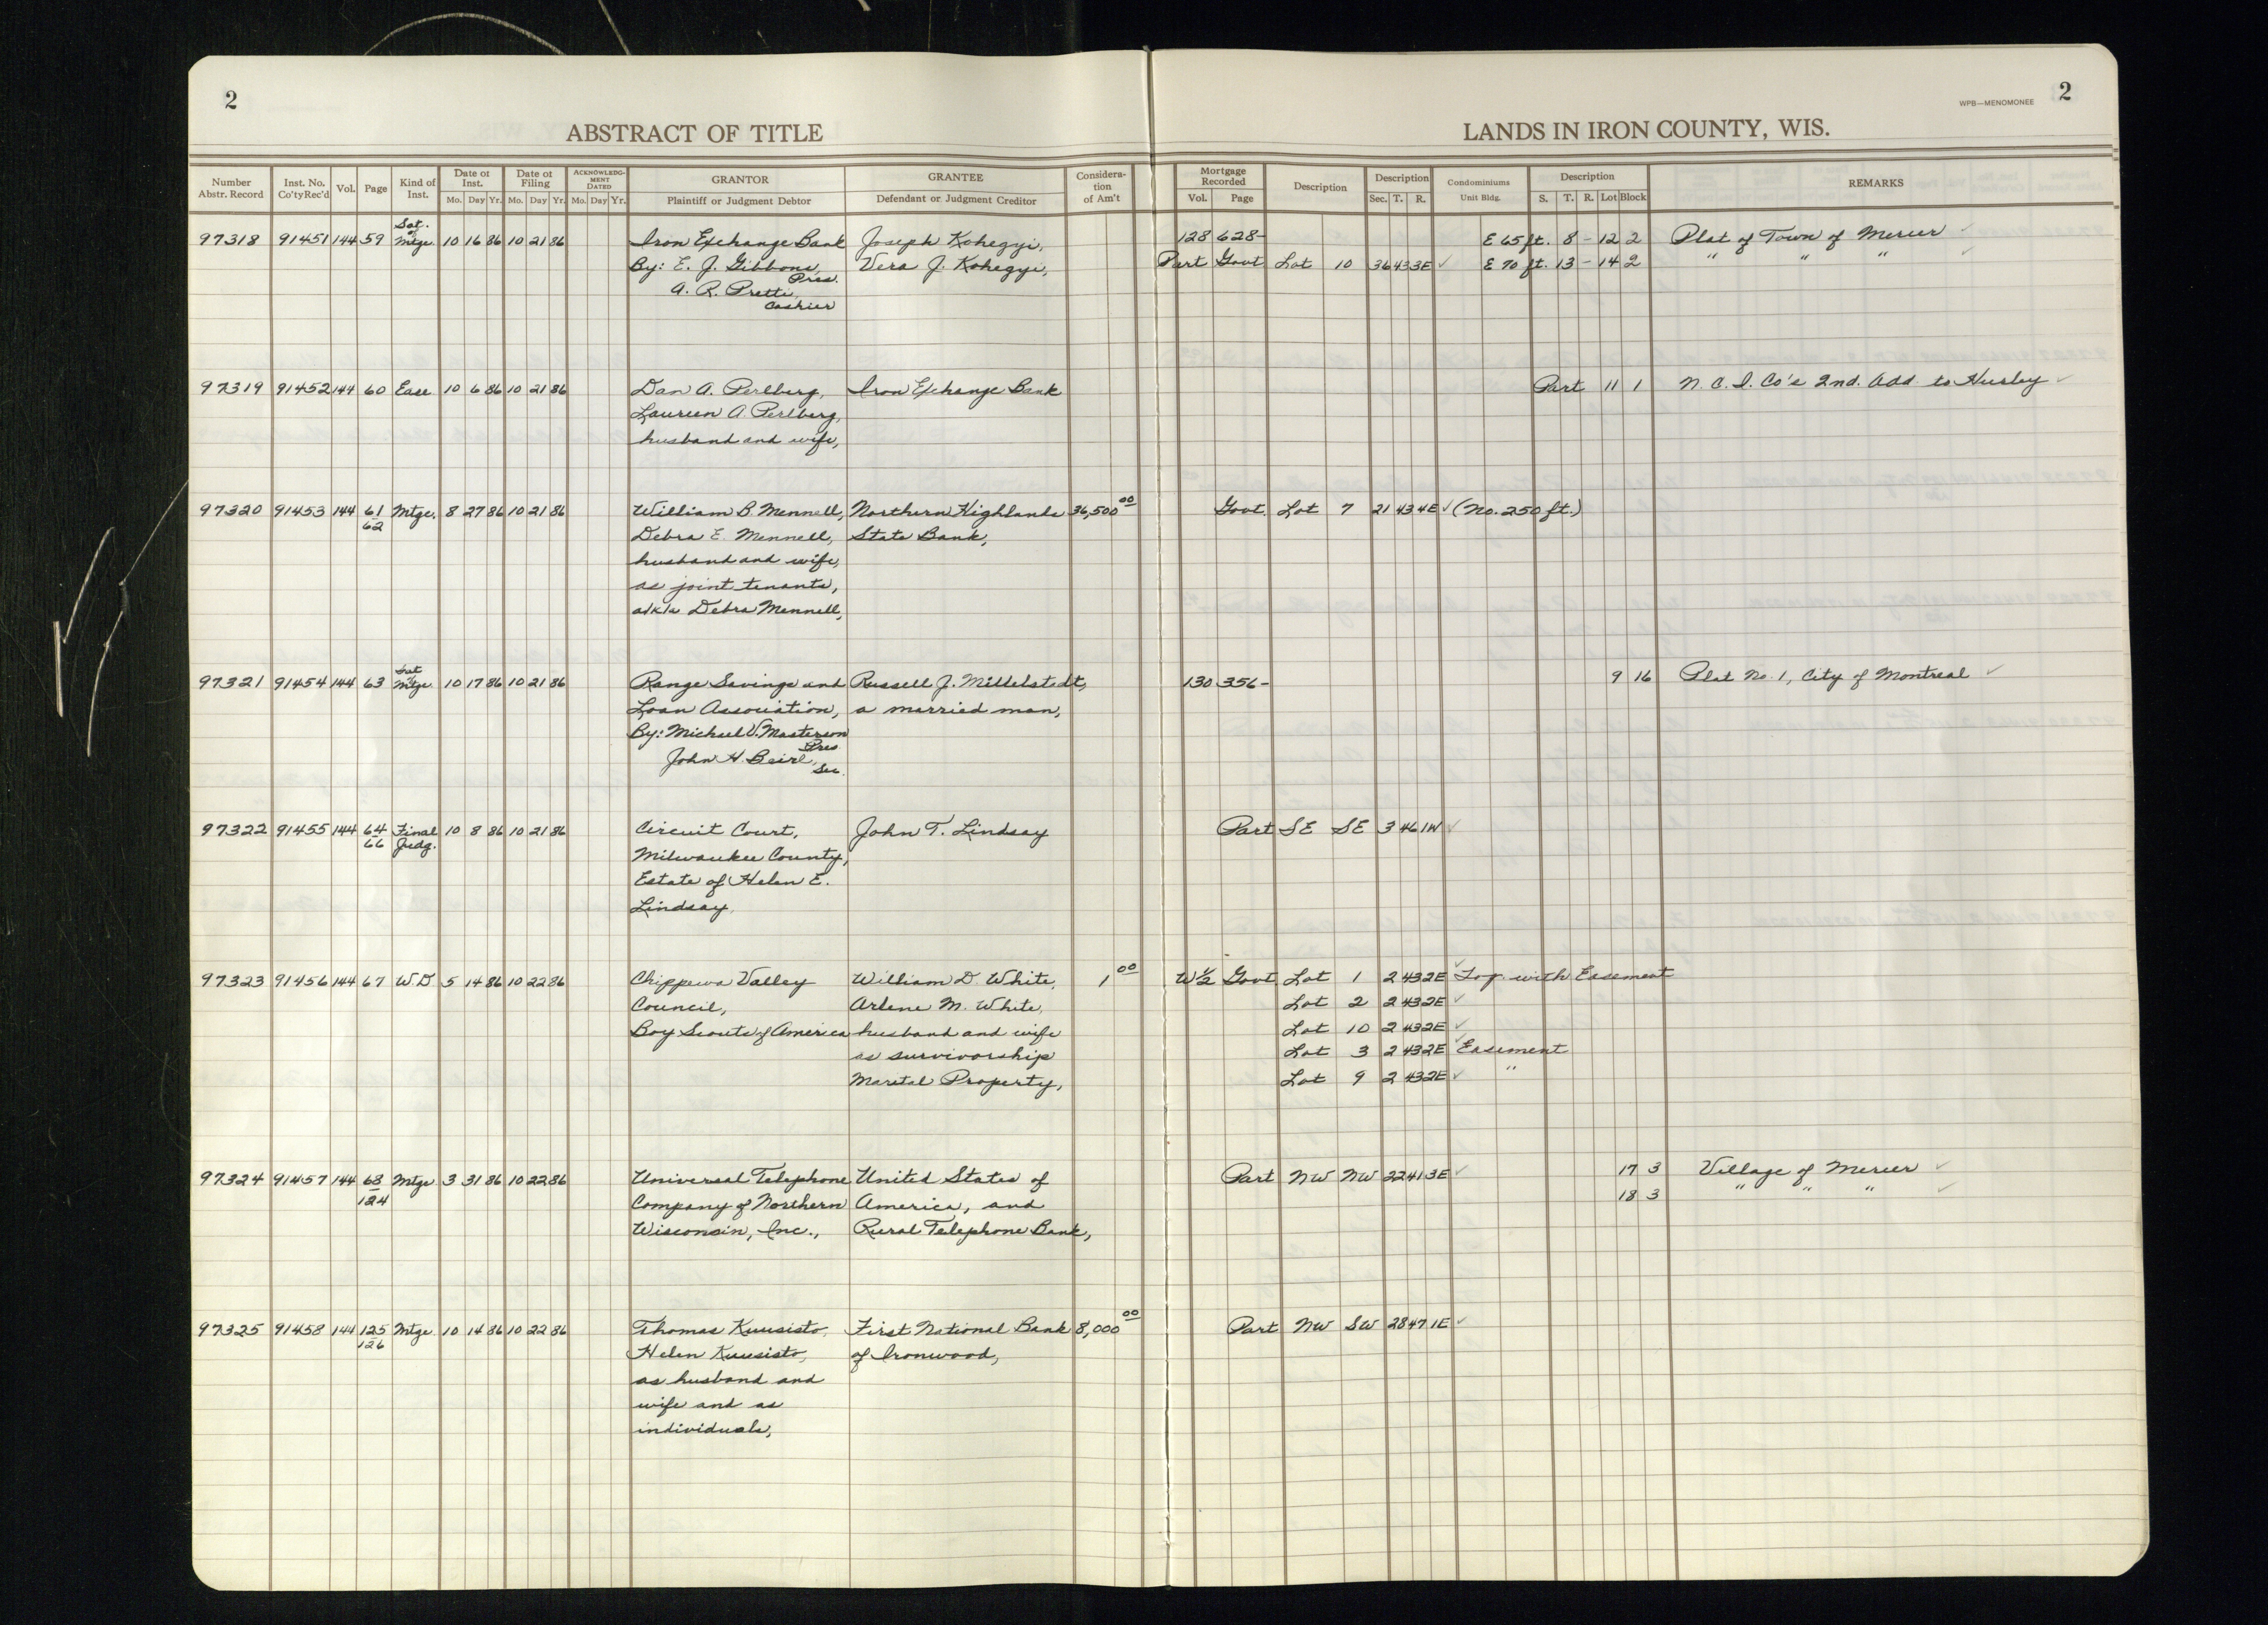 2
ABSTRACT OF TITLE
LANDS IN IRON COUNTY, WIS.
WPB—MENOMONEE
2
Number Abstr. Record | Inst. No. Co'tyRec'd | Vol. | Page | Kind of Inst. | Date of Inst. Mo. Day Yr. | Date of Filing Mo. Day Yr. | ACKNOWLEDGMENT DATED Mo. Day Yr. | GRANTOR Plaintiff or Judgment Debtor | GRANTEE Defendant or Judgment Creditor | Consideration of Am't | Mortgage Recorded Vol. Page | Description | Description Sec. T. R. | Condominiums Unit Bldg. | Description S. T. R. Lot Block | REMARKS
97318 91451 144 59 Sat. of Mtge. 10 16 86 10 21 86 Iron Exchange Bank Joseph Kohegyi, 128 628- E 65 ft. 8 - 12 2 Plat of Town of Mercer ✓
By: E. J. Gibbons, Pres. Vera J. Kohegyi, Part Govt Lot 10 36 43 3E ✓ E 70 ft. 13 - 14 2 " " " ✓
A. R. Prette,
Cashier
97319 91452 144 60 Ease 10 6 86 10 21 86 Dan A. Perlberg, Iron Exchange Bank Part 11 1 N. C. I. Co's 2nd. Add. to Hurley ✓
Laureen A. Perlberg,
husband and wife,
97320 91453 144 61/62 Mtge. 8 27 86 10 21 86 William B. Mennell, Northern Highlands 36,500 00 Govt. Lot 7 21 43 4E ✓ (No. 250 ft.)
Debra E. Mennell, State Bank,
husband and wife,
as joint tenants,
a/k/a Debra Mennell,
97321 91454 144 63 Sat of Mtge 10 17 86 10 21 86 Range Savings and Russell J. Mittelstedt, 130 356- 9 16 Plat No. 1, City of Montreal ✓
Loan Association, a married man,
By: Michael V. Masterson
Pres.
John H. Beirl,
Sec.
97322 91455 144 64/66 Final Judg. 10 8 86 10 21 86 Circuit Court, John T. Lindsay Part SE SE 3 46 1W ✓
Milwaukee County,
Estate of Helen E.
Lindsay,
97323 91456 144 67 W.D 5 14 86 10 22 86 Chippewa Valley William D. White, 1 00 W½ Govt Lot 1 2 43 2E ✓ Tog. with Easement
Council, Arlene M. White, Lot 2 2 43 2E ✓
Boy Scouts of America husband and wife Lot 10 2 43 2E ✓
as survivorship Lot 3 2 43 2E ✓ Easement
Marital Property, Lot 9 2 43 2E ✓ "
97324 91457 144 68/124 Mtge 3 31 86 10 22 86 Universal Telephone United States of Part NW NW 22 41 3E ✓ 17 3 Village of Mercer ✓
Company of Northern America, and 18 3 " " " ✓
Wisconsin, Inc., Rural Telephone Bank,
97325 91458 144 125/126 Mtge 10 14 86 10 22 86 Thomas Kuusisto, First National Bank 8,000 00 Part NW SW 28 47 1E ✓
Helen Kuusisto, of Ironwood,
as husband and
wife and as
individuals,